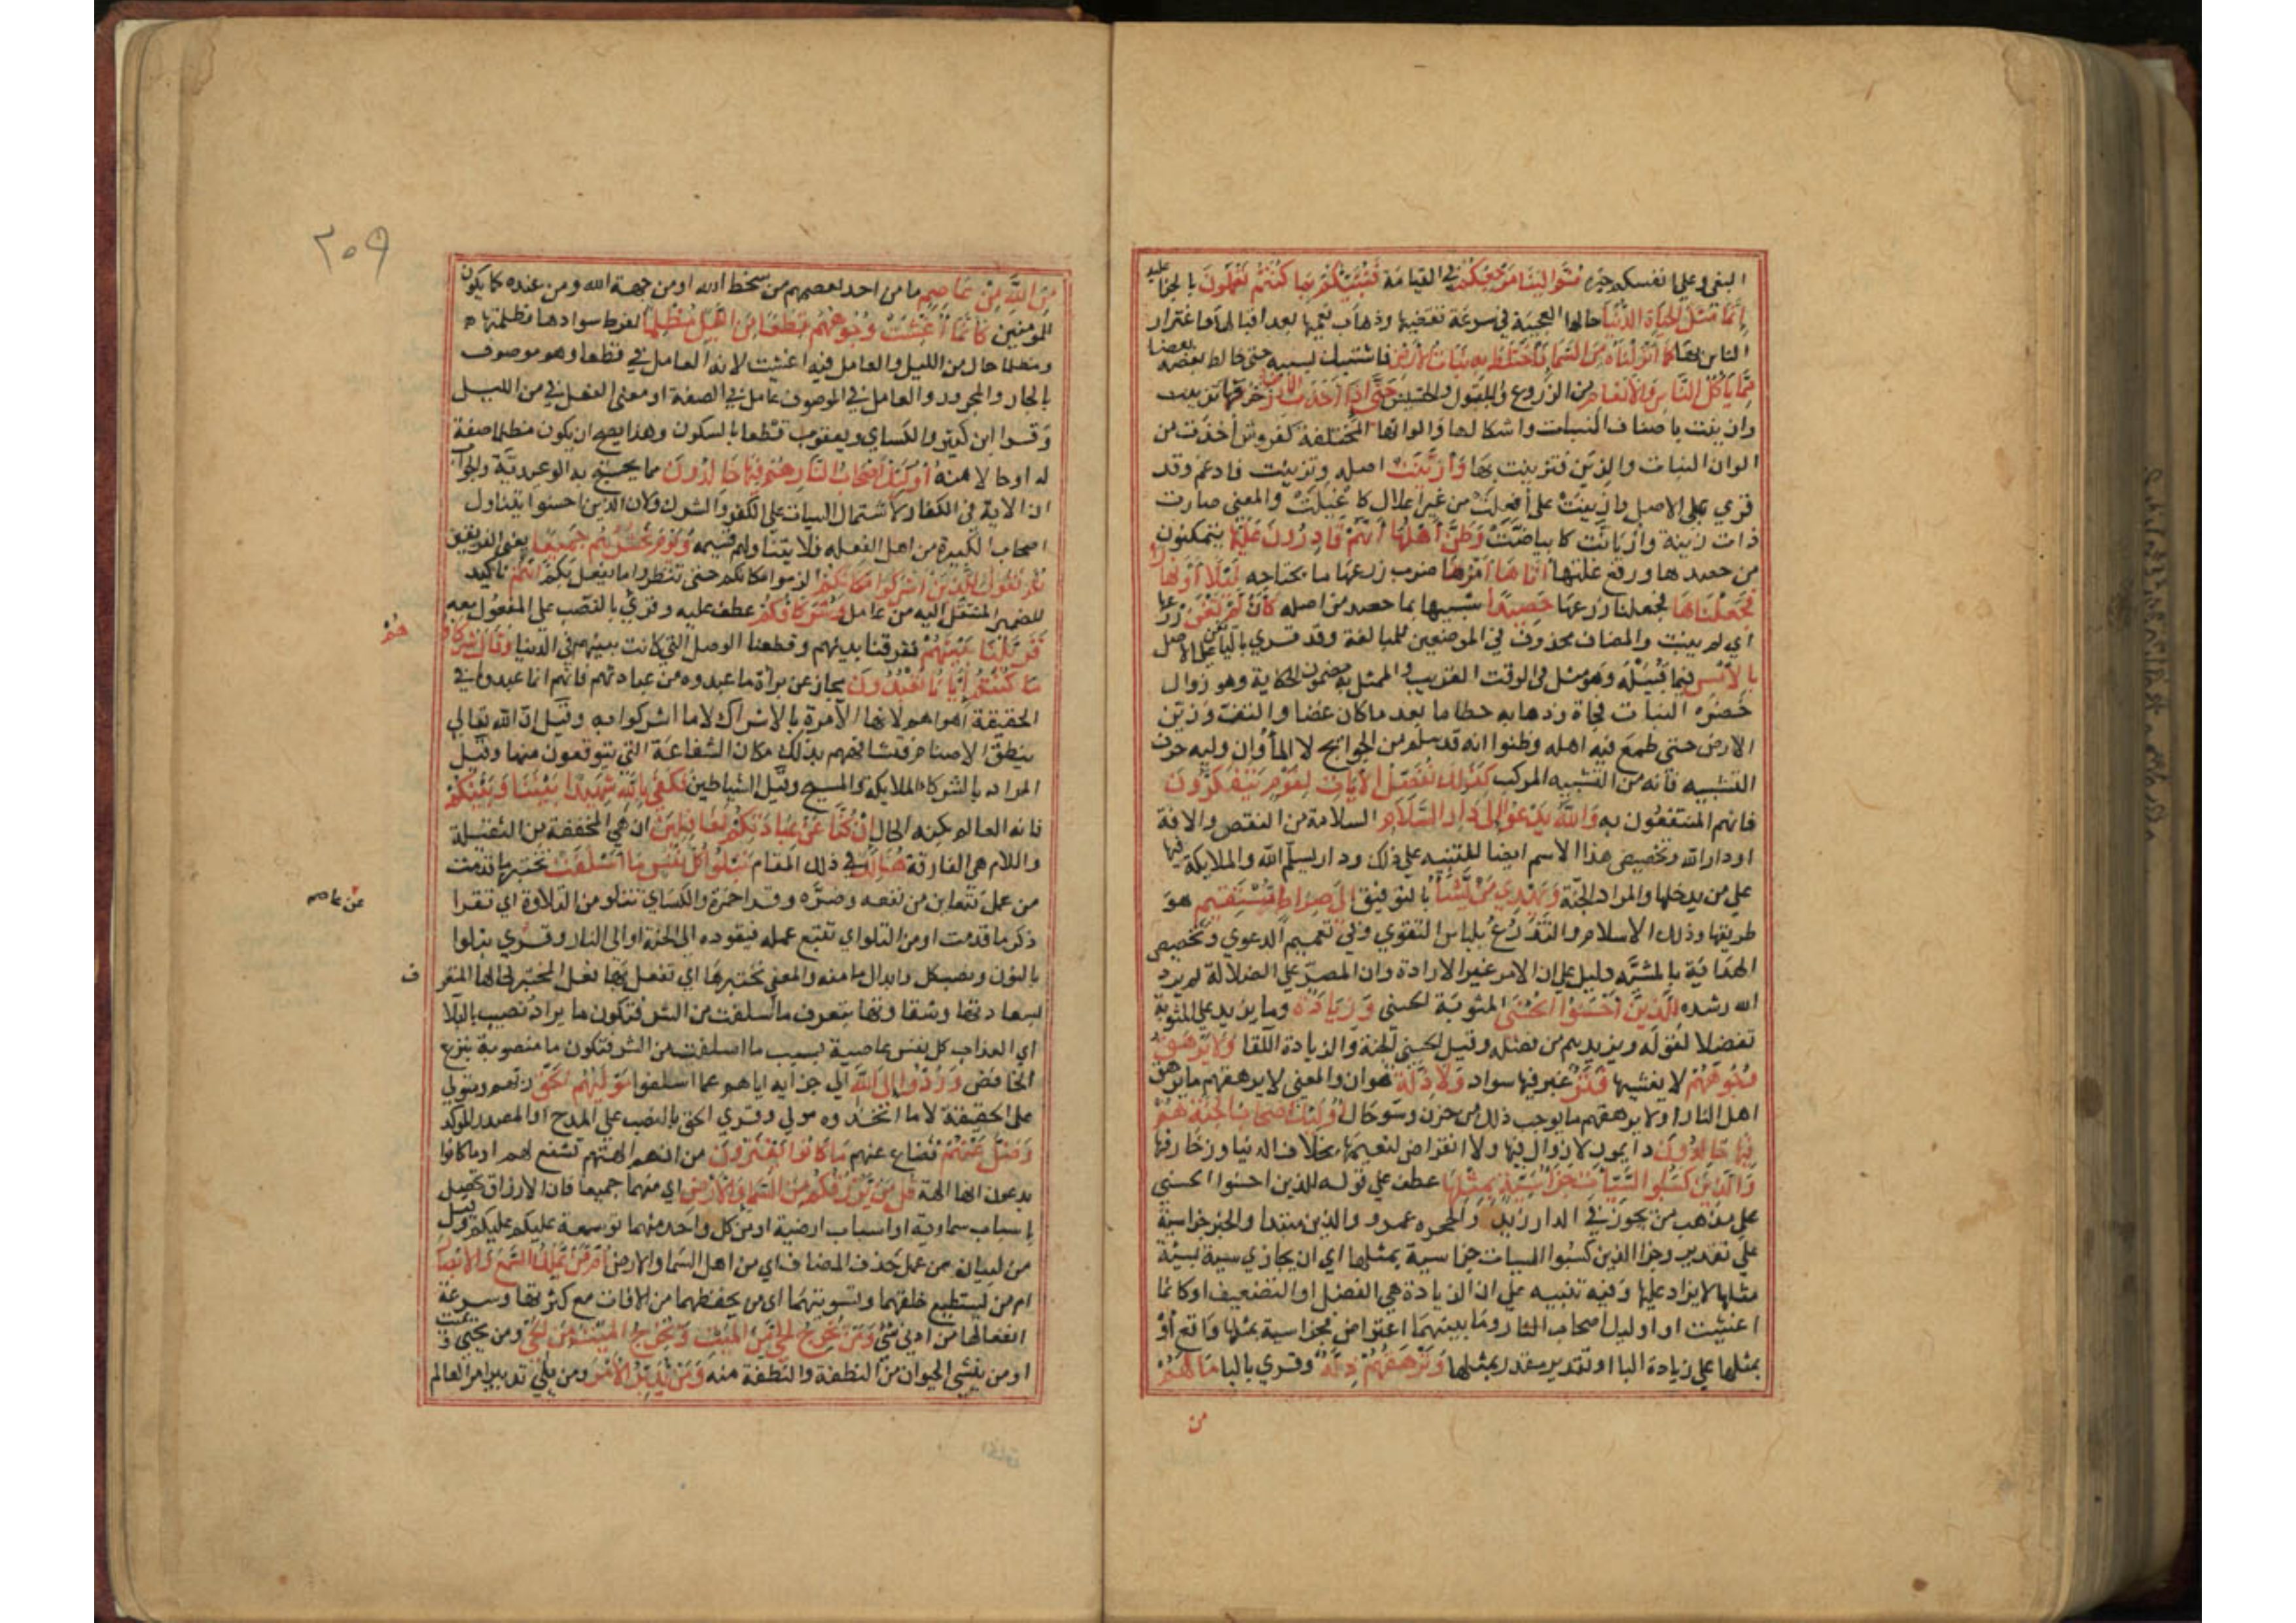 البغي وعلى انفسكم خبره ثم الينا مرجعكم في القيامة فننبئكم بما كنتم تعملون بالجزا عليه
انما مثل الحياة الدنيا حالها العجيبة في سرعة تقضيها وذهاب نعيمها بعد اقبالها واغترار
الناس بها كما انزلناه من السما فاختلط به نبات الارض فاشتبك بسببه حتى خالط بعضه بعضا
مما ياكل الناس والانعام من الزروع والبقول والحشيش حتى اذا اخذت الارض زخرفها تزينت
وازينت باصناف النبات واشكالها والوانها المختلفة كعروس اخذت من
الوان الثياب والزين فتزينت بها وازينت اصله وتزينت فادغم وقد
قري على الاصل وازينت على افعلت من غير اعلال كاغيلت والمعنى صارت
ذات زينة وازيانت كابياضت وظن اهلها انهم قادرون عليها يتمكنون
من حصدها ورفع غلتها اتاها امرنا ضرب زرعها ما يجتاحه ليلا او نهارا
فجعلناها فجعلنا زرعها حصيدا شبيها بما حصد من اصله كان لم تغن زرعها
اي لم ينبت والمضاف محذوف في الموضعين للمبالغة وقد قري باليا على الاصل
بالامس فيما قبيله وهو مثل في الوقت القريب والممثل به مضمون الحكاية وهو زوال
خضرة النبات فجاة وذهابه حطاما بعد ما كان غضا والتف وزين
الارض حتى طمع فيه اهله وظنوا انه قد سلم من الجوايح لا الما وان وليه حرف
التشبيه فانه من التشبيه المركب كذلك نفصل الايات لقوم يتفكرون
فانهم المنتفعون به والله يدعو الى دار السلام السلامة من النقص والافة
او دار الله وتخصيص هذا الاسم ايضا للتنبيه على ذلك ودار يسلم الله والملايكة فيها
على من يدخلها والمراد الجنة ويهدي من يشا بالتوفيق الى صراط مستقيم هو
طريقها وذلك الاسلام والتدرع بلباس التقوي وفي تعميم الدعوي وتخصيص
الهداية بالمشية دليل على ان الامر غير الارادة وان المصر على الضلالة لم يرد
الله رشده للذين احسنوا الحسنى المثوبة الحسني وزيادة وما يزيد على المثوبة
تفضلا لقوله ويزيدهم من فضله وقيل الحسني الجنة والزيادة اللقا ولا يرهق
وجوههم لا يغشيها قتر غبر فيها سواد ولا ذلة هوان والمعنى لا يرهقهم ما يرهق
اهل النار او لا يرهقهم ما يوجب ذلك من حزن وسو حال اوليك اصحاب الجنة هم
فيها خالدون دايمون لا زوال فيها ولا انقراض لنعيمها بخلاف الدنيا وزخارفها
والذين كسبوا السيات جزا سيئة بمثلها عطف على قوله للذين احسنوا الحسني
على مذهب من يجوز في الدار زيد والحجره عمرو والذين مبتدا والخبر جزا سية
على تقدير وجزا الذين كسبوا السيات جزا سية بمثلها اي ان يجازي سية بسيئة
مثلها لا يزاد عليها وفيه تنبيه على ان الزيادة هي الفضل او التضعيف او كانما
اغشيت او اوليك اصحاب النار وما بينهما اعتراض فجزا سية بمثلها واقع او
بمثلها على زيادة البا او تقدير مقدر بمثلها وترهقهم ذلة وقري باليا ما لهم
من
٢٠٩
من الله من عاصم ما من احد يعصمهم من سخط الله او من جهة الله ومن عنده كما يكون
للمومنين كانما اغشيت وجوههم قطعا من الليل مظلما لفرط سوادها وظلمتها
ومظلما حال من الليل والعامل فيه اغشيت لانه العامل في قطعا وهو موصوف
بالجار والمجرور والعامل في الموصوف عامل في الصفة او معنى الفعل في من الليل
وقرا ابن كثير والكساي ويعقوب قطعا بالسكون وهذا يصح ان يكون مظلما صفة
له او حالا منه اوليك اصحاب النار هم فيها خالدون مما يحتج به الوعيدية والجواب
ان الاية في الكفار لاشتمال السيات على الكفر والشرك ولان الذين احسنوا يتناول
اصحاب الكبيرة من اهل القبله فلا يتناولهم قسيمه ويوم نحشرهم جميعا يعني الفريقين
ثم نقول للذين اشركوا مكانكم الزموا مكانكم حتى تنظروا ما يفعل بكم انتم تاكيد
للضمير المنتقل اليه من عامله وشركاوكم عطف عليه وقري بالنصب على المفعول معه
فزيلنا بينهم ففرقنا بينهم وقطعنا الوصل التي كانت بينهم في الدنيا وقال شركاوهم
ما كنتم ايانا تعبدون مجاز عن براة ما عبدوه من عبادتهم فانهم انما عبدوا في
الحقيقة اهواهم لانها الامرة بالاشراك لا ما اشركوا به وقيل ان الله تعالى
ينطق الاصنام فتشافههم بذلك مكان الشفاعة التي يتوقعون منها وقيل
المراد بالشركا الملايكة والمسيح وقيل الشياطين فكفي بالله شهيدا بيننا وبينكم
فانه العالم بكنه الحال ان كنا عن عبادتكم لغافلين ان هي المخففة من الثقيلة
واللام هي الفارقة هنالك في ذلك المقام تبلوا كل نفس ما اسلفت تختبر ما قدمت
من عمل فتعاين من نفعه وضره وقرا حمزة والكساي تتلو من التلاوة اي تقرا
عن عاصم
ذكر ما قدمت او من التلو اي تتبع عمله فيقوده الى الجنة او الى النار وقري نبلوا
بالنون ونصب كل وابدال ما منه والمعني نختبرها اي نفعل بها فعل المختبر لحالها المتعرف
لسعادتها وشقاوتها بتعرف ما اسلفت من
اي العذاب كل نفس عاصية بسبب ما اسلفت من الشر فتكون ما منصوبة بنزع
الخافض وردوا الى الله الي جزايه اياهم عما اسلفوا موليهم الحق ربهم ومتولي
على الحقيقة لا ما اتخذوه مولي وقري الحق بالنصب على المدح او المصدر الموكد
وضل عنهم فضاع عنهم ما كانوا يفترون من ان الهتهم تشفع لهم او ما كانوا
يدعون انها الهة قل من يرزقكم من السما والارض اي منهما جميعا فان الارزاق تحصل
باسباب سماوية او اسباب ارضية او من كل واحد منهما توسعة عليكم وقيل
من لبيان من على حذف المضاف اي من اهل السما والارض امن يملك السمع والابصار
ام من يستطيع خلقهما وتسويتهما او من يحفظهما من الافات مع كثرتها وسرعة
انفعالها من ادني شي ومن يخرج الحي من الميت ويخرج الميت من الحي ومن يحيي ويميت
او من ينشي الحيوان من النطفة والنطفة منه ومن يدبر الامر ومن يلي تدبير امر العالم